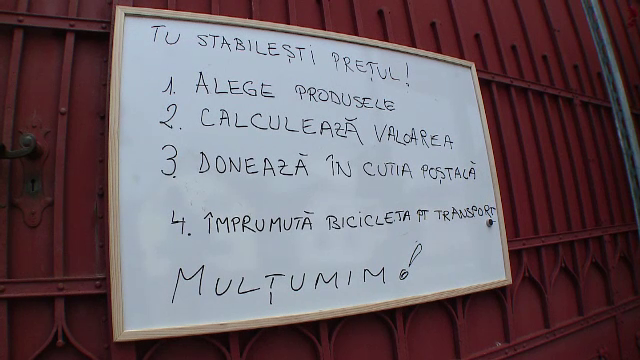 TU STABILEȘTI PREȚUL!
1. ALEGE PRODUSELE
2. CALCULEAZĂ VALOAREA
3. DONEAZĂ ÎN CUTIA POȘTALĂ
4. ÎMPRUMUTĂ BICICLETA PT TRANSPORT
MULȚUMIM!